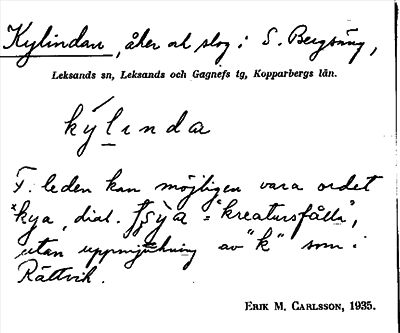 Kylindan, åker och slog i S. Bergsäng,
Leksands sn, Leksands och Gagnefs tg, Kopparbergs län.
ký̱lında
F. leden kan möjligen vara ordet
*kya, dial. ʃyà = "kreatursfålla",
utan uppmjukning av "k" som i
Rättvik.
ERIK M. CARLSSON, 1935.